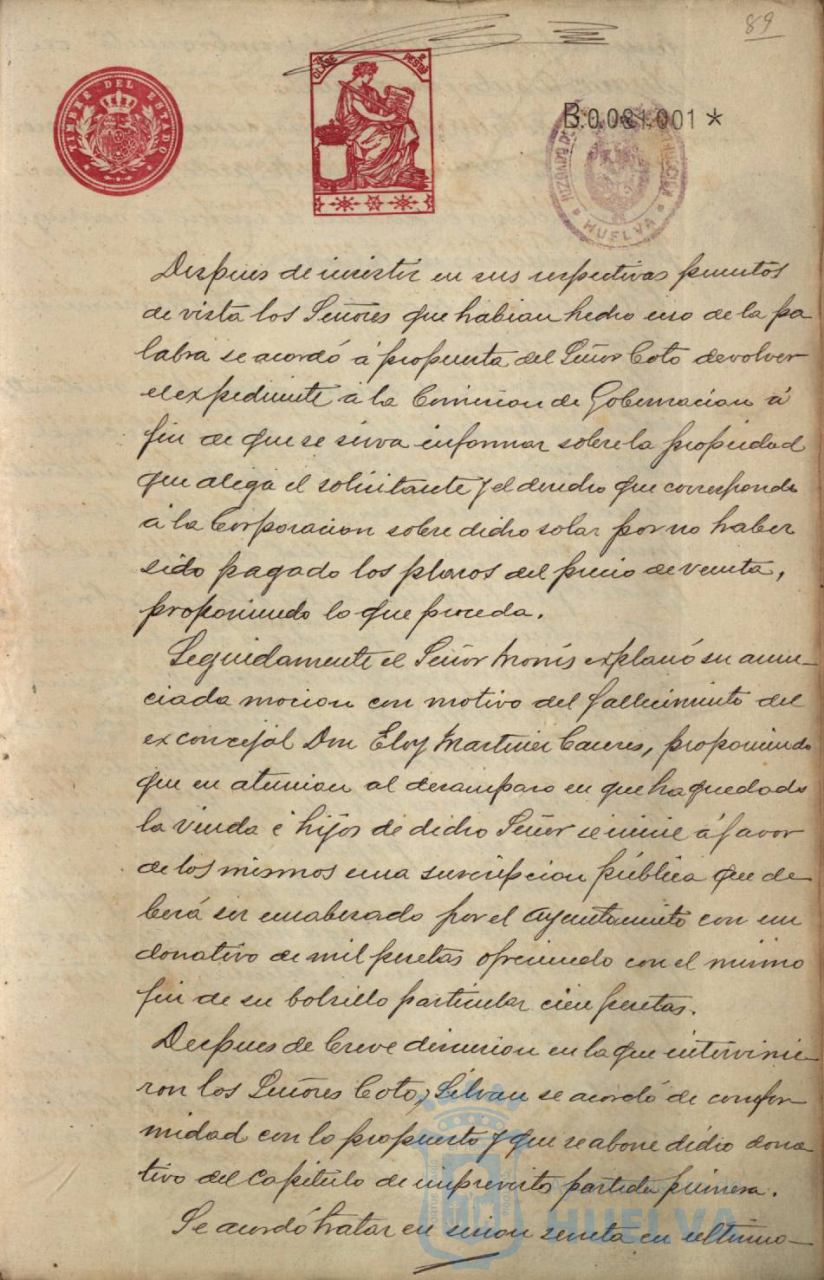 89
TIMBRE DEL ESTADO
CLASE
PESETAS
B.0.081.001 *
HUELVA
Despues de insistir en sus respectivas puntos
de vista los Señores que habian hecho uso de la pa
labra se acordó á propuesta del Señor Coto devolver
el expediente á la Comision de Gobernacion á
fin de que se sirva informar sobre la propiedad
que alega el solicitante y el derecho que corresponda
á la Corporacion sobre dicho solar por no haber
sido pagado los plazos del precio de venta,
proponiendo lo que proceda.
Seguidamente el Señor Monís explanó su anun-
ciada mocion con motivo del fallecimiento del
exconcejal Don Eloy Martinez Caceres, proponiendo
que en atencion al desamparo en que ha quedado
la viuda é hijos de dicho Señor se inicie á favor
de los mismos una suscripcion pública que de
berá ser encabezado por el Ayuntamiento con un
donativo de mil pesetas ofreciendo con el mismo
fin de su bolsillo particular cien pesetas.
Despues de breve discusion en la que intervinie-
ron los Señores Coto y Silvan se acordó de confor-
midad con lo propuesto y que se abone dicho dona
tivo del Capítulo de imprevistos partida primera.
Se acordó tratar en sesion secreta en ultimo-
HUELVA